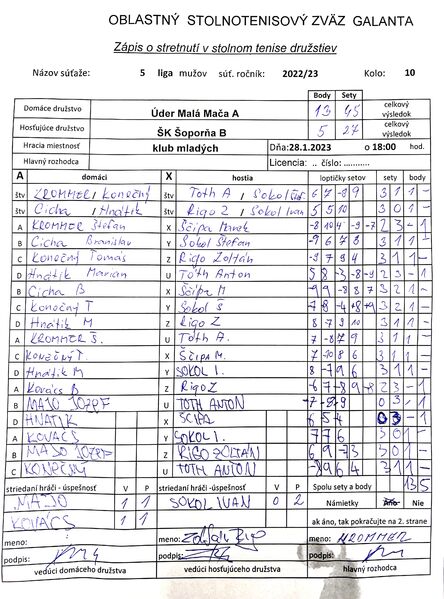 OBLASTNÝ STOLNOTENISOVÝ ZVÄZ GALANTA
Zápis o stretnutí v stolnom tenise družstiev
Názov súťaže: 5 liga mužov súť. ročník: 2022/23 Kolo: 10
Body Sety
Domáce družstvo Úder Malá Mača A 13 45 celkový výsledok
Hosťujúce družstvo ŠK Šoporňa B 5 27 celkový výsledok
Hracia miestnosť klub mladých Dňa:28.1.2023 o 18:00 hod.
Hlavný rozhodca Licencia: .. číslo:...........
A domáci X hostia loptičky setov sety body
štv KROMMER / Konečný štv Tóth A / Sokol 6 7 -8 9 3 1 1 -
štv Cicha / Hnátik štv Rigo Z / Sokol Ivan 5 5 10 3 0 1 -
A KROMMER Štefan X Ščipa Marek -8 10 4 -9 -7 2 3 - 1
B Cicha Branislav Y Sokol Štefan -9 6 7 8 3 1 1 -
C Konečný Tomáš Z Rigo Zoltán -9 7 9 4 3 1 1 -
D Hnátik Marian U Tóth Anton
B Cicha B X Ščipa M 3 2 1 -
C Konečný T Y Sokol Š
D Hnátik M Z Rigo Z 8 7 9 10 3 1 1 -
A KROMMER Š. U Tóth A. 7 -8 7 9 3 1 1 -
C Konečný T. X Ščipa M. 7 -10 8 6 3 1 1 -
D Hnátik M Y SOKOL I. 8 -7 9 6 3 1 1 -
A Kovács B Z Rigo Z 2 3 - 1
B MAJO JOZEF U TOTH ANTON 0 3 - 1
D HNATIK X SCIPA 6 5 4 0 3 - 1
A KOVACS Y SOKOL I. 7 7 6 3 0 1 -
B MAJO JOZEF Z RIGO ZOLTÁN 6 9 -7 3 3 1 1 -
C KONEČNÝ U TOTH ANTON -8 9 6 4 3 1 1 -
striedaní hráči - úspešnosť V P striedaní hráči - úspešnosť V P Spolu sety a body 13 5
MAJO 1 1 SOKOL IVAN 0 2 Námietky Áno Nie
KOVÁCS 1 1 ak áno, tak pokračujte na 2. strane
meno: meno: KROMMER
podpis: podpis:
vedúci domáceho družstva vedúci hosťujúceho družstva hlavný rozhodca